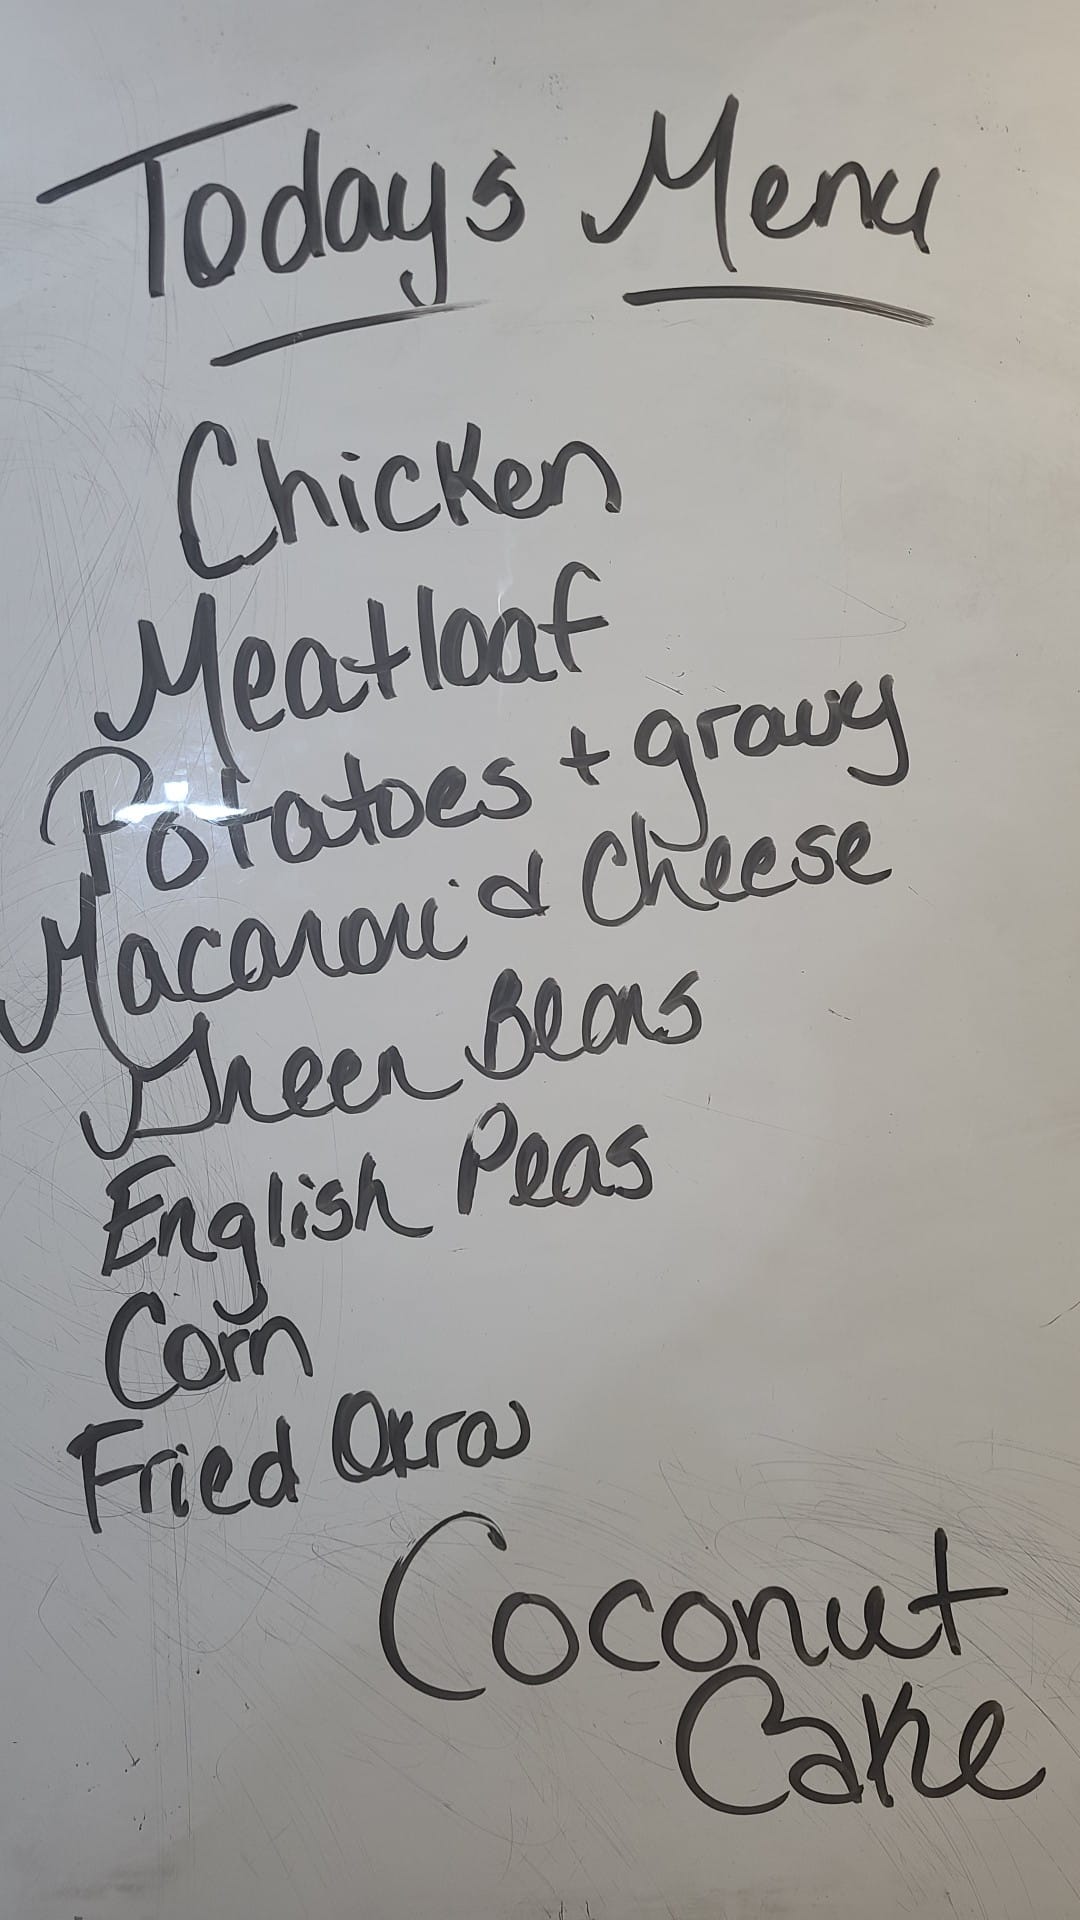 Todays Menu
Chicken
Meatloaf
Potatoes + gravy
Macaroni & Cheese
Green Beans
English Peas
Corn
Fried Okra
Coconut
Cake